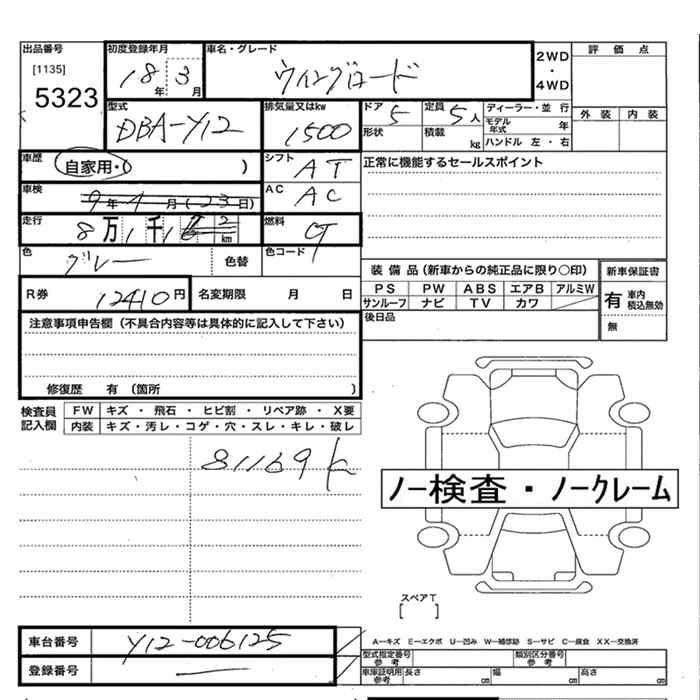 出品番号 初度登録年月 車名・グレード 2WD・4WD 評価点
[1135] 5323 18年 3月 ウィングロード
外装 内装
型式 排気量又はkw ドア 5 定員 5人 ディーラー・並行
DBA-Y12 1500 形状 積載 kg モデル年式 年
ハンドル 左・右
車歴 自家用・( ) シフト AT 正常に機能するセールスポイント
車検 9年4月(23日) AC AC
走行 8万1千1 km 燃料
色 グレー 色替 色コード
装備品(新車からの純正品に限り○印) 新車保証書
PS PW ABS エアB アルミW 有 車内積込無効
サンルーフ ナビ TV カワ 無
R券 12410円 名変期限 月 日
後日品
注意事項申告欄(不具合内容等は具体的に記入して下さい)
修復歴 有(箇所 )
検査員記入欄 FW キズ・飛石・ヒビ割・リペア跡・X要
内装 キズ・汚レ・コゲ・穴・スレ・キレ・破レ
81169 k
ノー検査・ノークレーム
スペアT
[ ]
車台番号 Y12-006125
登録番号 —
A—キズ E—エクボ U—凹み W—補修跡 S—サビ C—腐食 XX—交換済
型式指定番号 参考 類別区分番号 参考
車庫証明用 参考 長さ cm 幅 cm 高さ cm